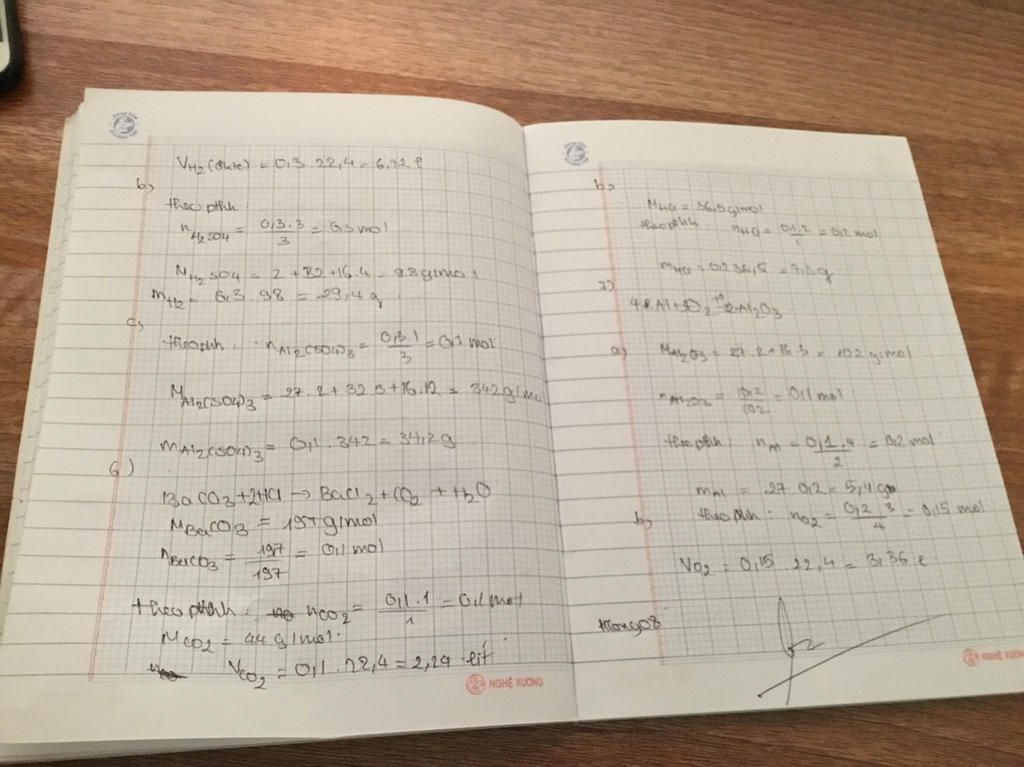 V_H2 (đktc) = 0,3 . 22,4 = 6,72 l
b,
theo pthh:
n_H2SO4 = 0,3.3/3 = 0,3 mol
M_H2SO4 = 2 + 32 + 16.4 = 98 g/mol
m_H2 = 0,3 . 98 = 29,4 g
c,
theo pthh: n_Al2(SO4)3 = 0,3.1/3 = 0,1 mol
M_Al2(SO4)3 = 27.2 + 32.3 + 16.12 = 342 g/mol
m_Al2(SO4)3 = 0,1 . 342 = 34,2 g
6)
BaCO3 + 2HCl → BaCl2 + CO2 + H2O
M_BaCO3 = 197 g/mol
n_BaCO3 = 19,7/197 = 0,1 mol
theo pthh: n_CO2 = 0,1.1/1 = 0,1 mol
M_CO2 = 44 g/mol.
V_CO2 = 0,1 . 22,4 = 2,24 lít
NGHỆ XƯƠNG
b,
M_HCl = 36,5 g/mol
theo pthh: n_HCl = 0,1.2/1 = 0,2 mol
m_HCl = 0,2.36,5 = 7,3 g
7)
4Al + 3O2 t° 2Al2O3
a,
M_Al2O3 = 27.2 + 16.3 = 102 g/mol
n_Al2O3 = 10,2/102 = 0,1 mol
theo pthh: n_Al = 0,1.4/2 = 0,2 mol
m_Al = 27.0,2 = 5,4 g
b,
theo pthh: n_O2 = 0,2.3/4 = 0,15 mol
V_O2 = 0,15 . 22,4 = 3,36 l
NGHỆ XƯƠNG